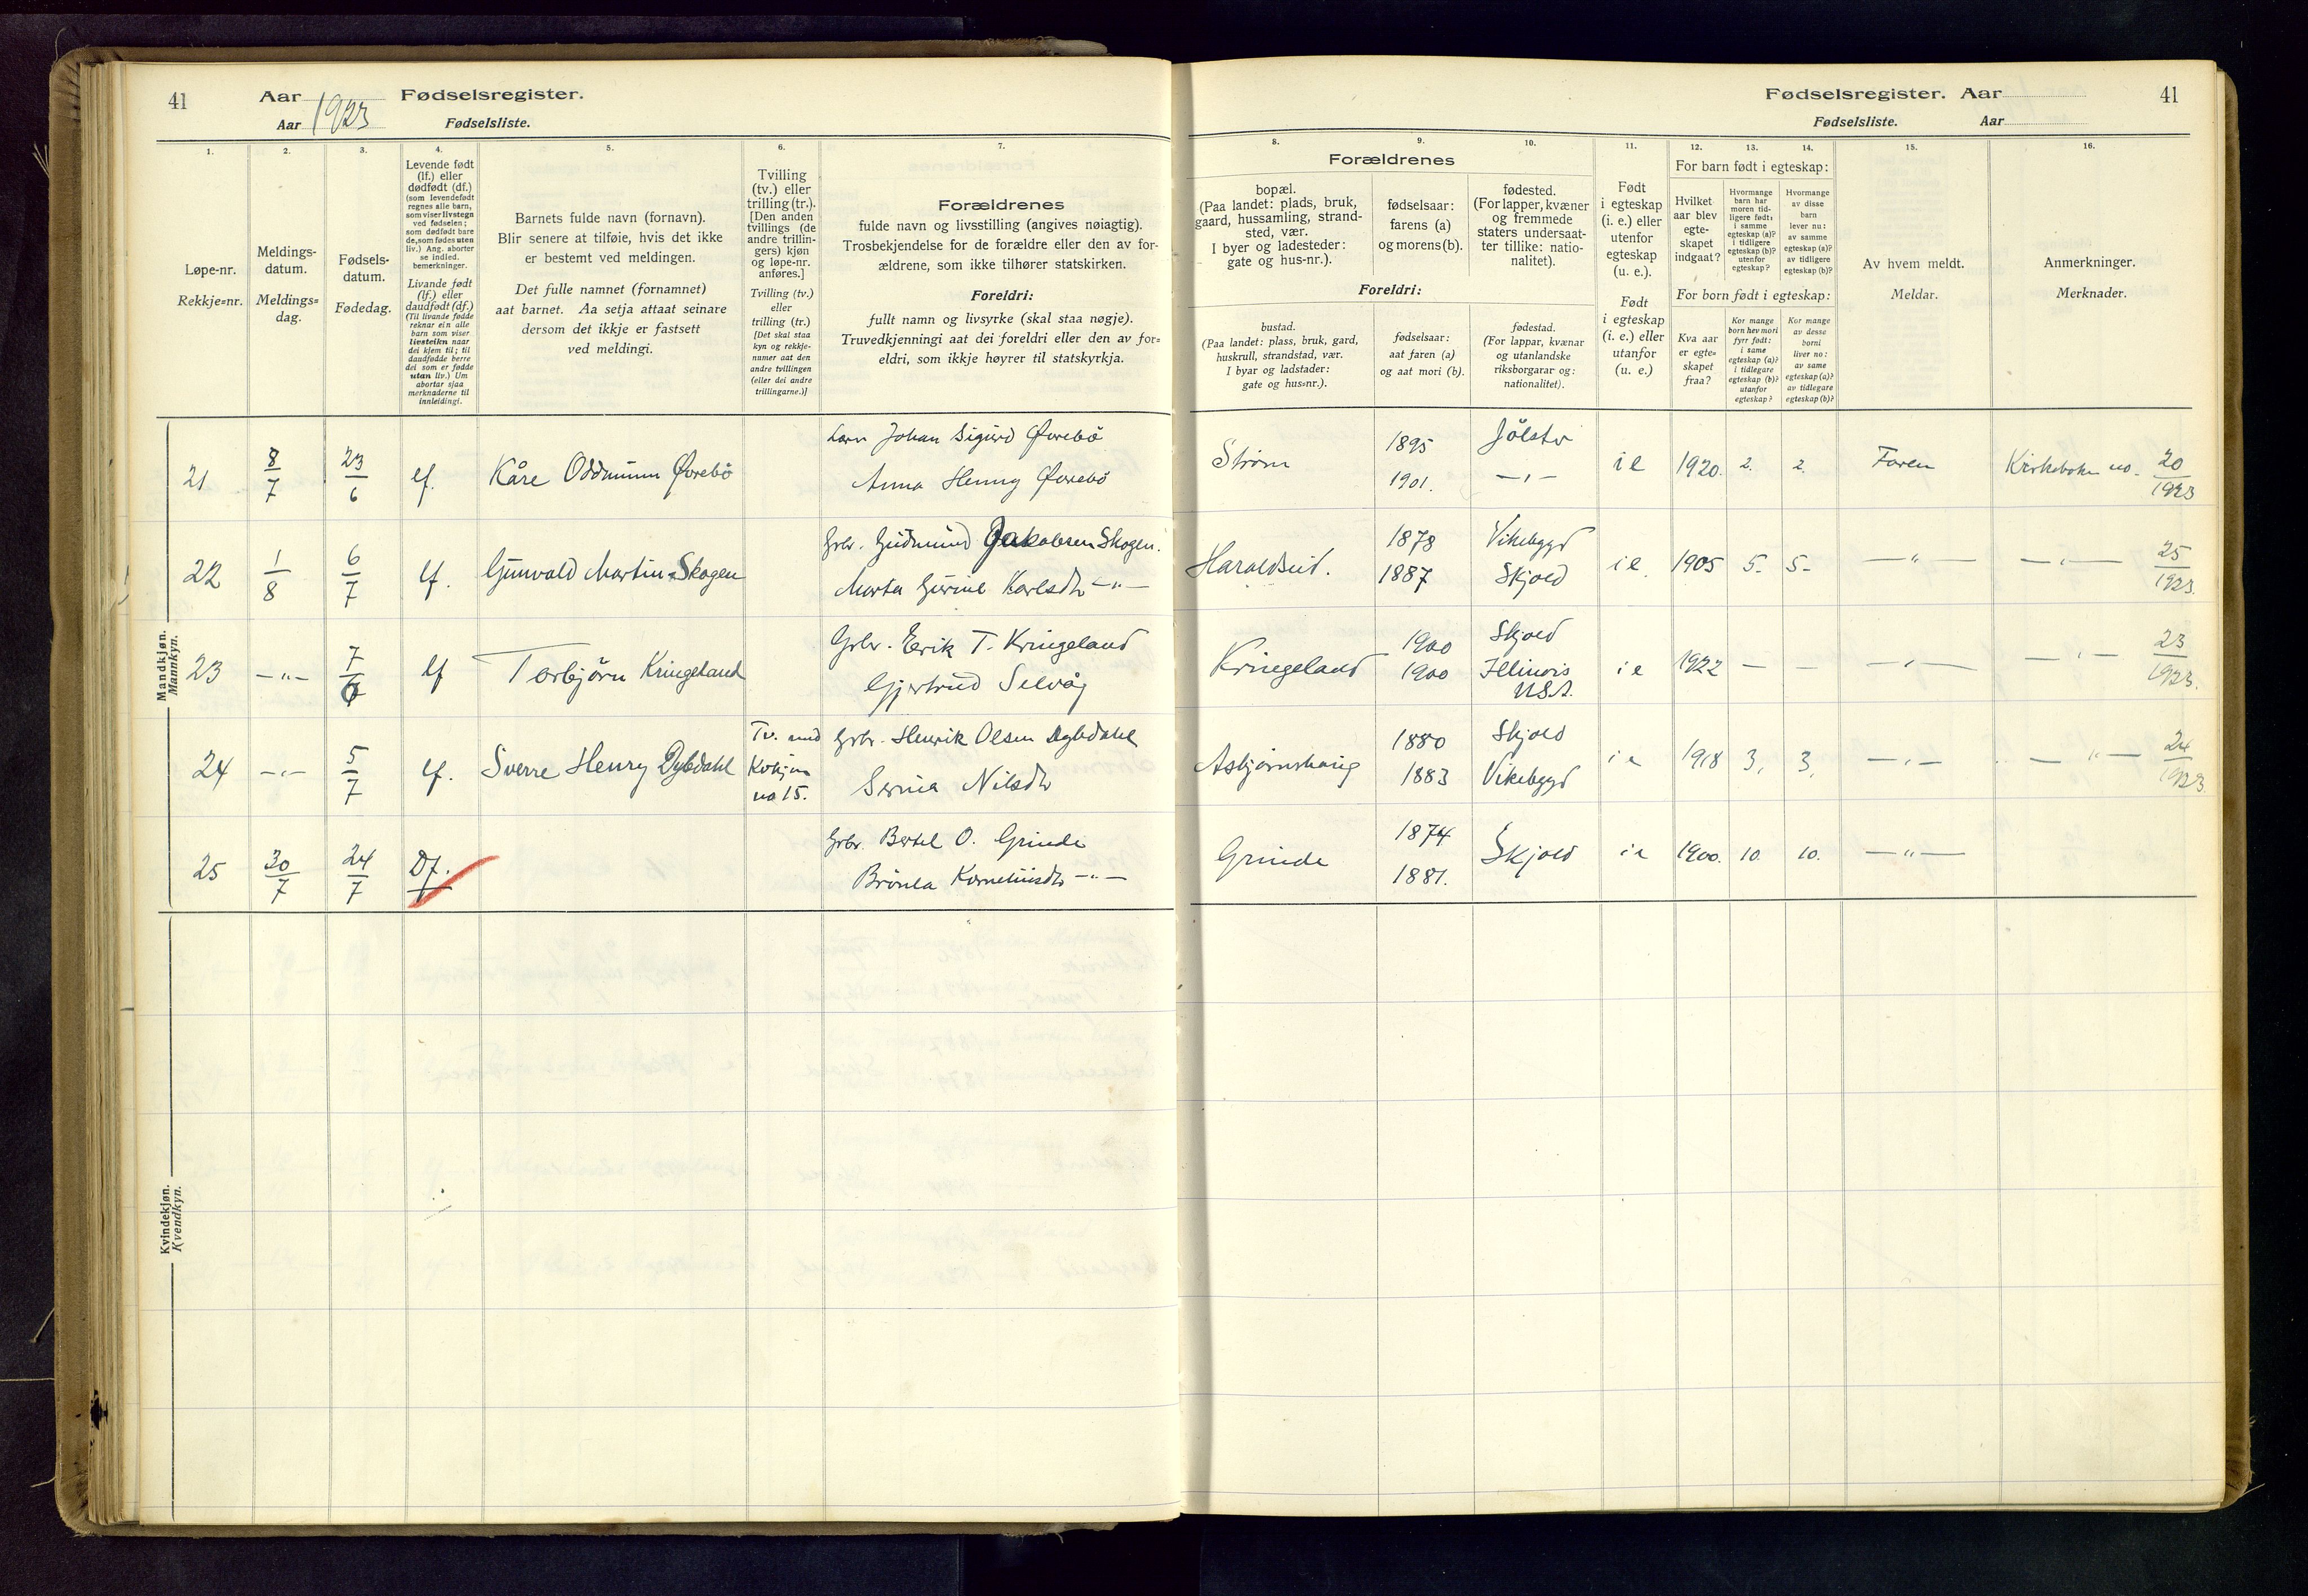 41
Aar
Fødselsregister.
Aar 1923
Fødselsliste.
1.
2.
3.
4.
5.
6.
7.
Løpe-nr.
Rekkje=nr.
Meldings-
datum.
Meldings=
dag.
Fødsels-
datum.
Fødedag.
Levende født
(lf.) eller
dødfødt (df.)
(som levendefødt
regnes alle barn,
som viser livstegn
ved fødselen;
som dødfødt bare
de, som fødes uten
liv.) Ang. aborter
se indled.
bemerkninger.
Livande født
(lf.) eller
daudfødt (df.)
(Til livande fødde
reknar ein alle
barn som viser
livsteikn naar
dei kjem til; til
daudfødde berre
dei som er fødde
utan liv.) Um
abortar sjaa
merknaderne til
innleidingi.
Barnets fulde navn (fornavn).
Blir senere at tilføie, hvis det ikke
er bestemt ved meldingen.
Det fulle namnet (fornamnet)
aat barnet. Aa setja attaat seinare
dersom det ikkje er fastsett
ved meldingi.
Tvilling
(tv.) eller
trilling (tr.).
[Den anden
tvillings (de
andre trillin-
gers) kjøn
og løpe-nr.
anføres.]
Tvilling (tv.)
eller
trilling (tr.)
[Det skal staa
kyn og rekkje-
numer aat den
andre tvillingen
(eller dei andre
trillingarne.)]
Forældrenes
fulde navn og livsstilling (angives nøiagtig).
Trosbekjendelse for de forældre eller den av for-
ældrene, som ikke tilhører statskirken.
Foreldri:
fullt namn og livsyrke (skal staa nøgje).
Truvedkjenningi aat dei foreldri eller den av for=
eldri, som ikkje høyrer til statskyrkja.
Mandkjøn.
Mannkyn.
21
8/7
23/6
lf.
Kåre Oddmunn Øvrebö
Johan Sigurd Øvrebö
Anna Henny Øvrebö
22
1/8
6/7
lf.
Gunvald Martin Skogen
Grbr. Gudmund Jakobsen Skogen.
Marta Gurine Karlsdtr —"—
23
—"—
lf
Torbjörn Kringeland
Grbr. Erik T. Kringeland
Gjertrud Selvåg
24
—"—
5/7
lf.
Sverre Henry Dybdahl
Tv. med
Kvkjøn
no 15.
Grbr. Henrik Olsen Dybdahl
Serina Nilsdtr
25
30/7
24/7
Df.
Grbr. Bertel O. Grinde
Korneliusdtr —"—
Kvindekjøn.
Kvendkyn.
Fødselsregister. Aar
41
Fødselsliste.
Aar
8.
9.
10.
11.
12.
13.
14.
15.
16.
Forældrenes
bopæl.
(Paa landet: plads, bruk,
gaard, hussamling, strand-
sted, vær.
I byer og ladesteder:
gate og hus-nr.).
fødselsaar:
farens (a)
og morens (b).
fødested.
(For lapper, kvæner
og fremmede
staters undersaat-
ter tillike: natio-
nalitet).
Foreldri:
bustad.
(Paa landet: plass, bruk, gard,
huskrull, strandstad, vær.
I byar og ladstader:
gate og hus=nr.).
fødselsaar:
aat faren (a)
og aat mori (b).
fødestad.
(For lappar, kvænar
og utanlandske
riksborgarar og:
nationalitet).
Født
i egteskap
(i. e.) eller
utenfor
egteskap
(u. e.).
Født
i egteskap
(i. e.) eller
utanfor
(u. e.)
For barn født i egteskap:
Hvilket
aar blev
egte-
skapet
indgaat?
Hvormange
barn har
moren tid-
ligere født:
i samme
egteskap (a)?
i tidligere
egteskap (b)?
utenfor
egteskap?
Hvormange
av disse
barn
lever nu:
av samme
egteskap (a)?
av tidligere
egteskap (b)?
For born født i egteskap:
Kva aar
er egte=
skapet
fraa?
Kor mange
born hev mori
fyrr født:
i same
egteskap (a)?
i tidlegare
egteskap (b)?
utanfor
egteskap?
Kor mange
av desse
borni
liver no:
av same
egteskap (a)?
av tidlegare
egteskap (b)?
Av hvem meldt.
Meldar.
Anmerkninger.
Merknader.
Strøm
1895
1901.
Jölster
—"—
i e
1920.
2.
2.
Faren
Kirkeboken no.
20/1923
Haraldseid.
1878
1887
Vikebygd
Skjold
i e
1905
5.
5.
—"—
—"—
25/1923.
Kringeland
1900
1900
Skjold
Illinois
U.S.A.
i e
1922
—
—
—"—
—"—
23/1923.
Asbjørnshaug
1880
1883
Skjold
Vikebygd
i e
1918
3,
3,
—"—
—"—
24/1923.
Grinde
1874
1881.
Skjold
i e
1900.
10.
10.
—"—